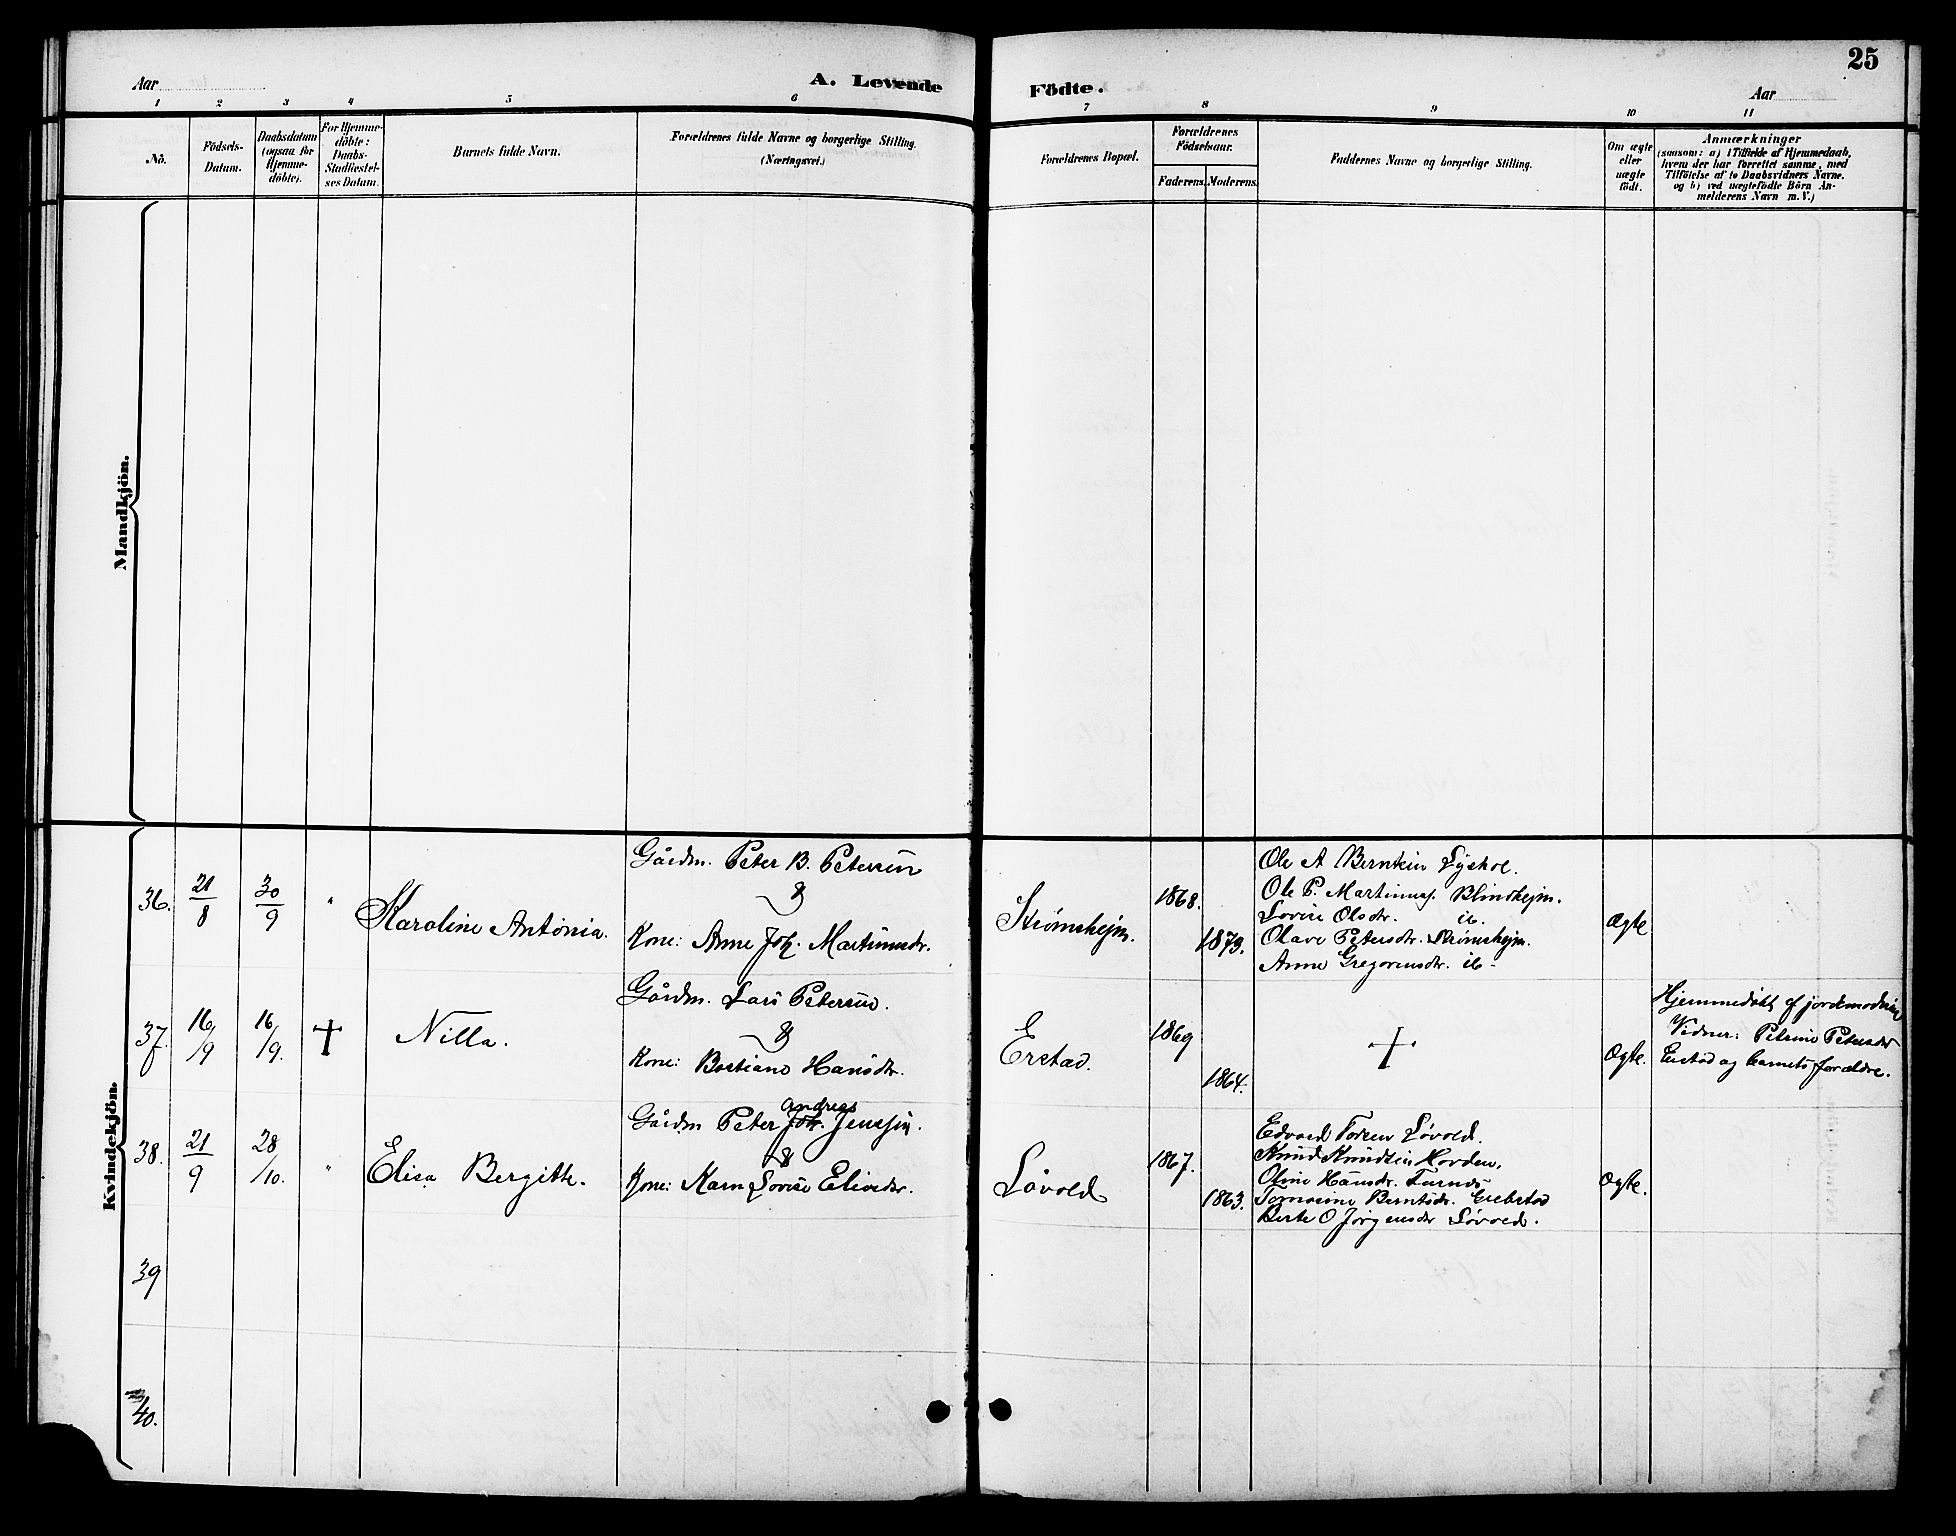 25
Aar
A. Levende
Födte.
Aar
1 2 3 4 5 6 7 8 9 10 11
No.
Födsels-
Datum.
Daabsdatum
(ogsaa for
Hjemme-
döbte).
For Hjemme-
döbte:
Daabs-
Stadfæstel-
ses Datum.
Barnets fulde Navn.
Forældrenes fulde Navne og borgerlige Stilling.
(Næringsvei.)
Forældrenes Bopæl.
Forældrenes
Födselsaar.
Faderens.
Moderens.
Faddernes Navne og borgerlige Stilling.
Om ægte
eller
uægte
födt.
Anmærkninger
(saasom: a) i Tilfælde af Hjemmedaab,
hvem der har forrettet samme, med
Tilföielse af to Daabsvidners Navne.
og b) ved uægtefödte Börn An-
melderens Navn m. V.)
Mandkjön.
Kvindekjön.
36.
21/8
30/9
"
Karoline Antonia.
Gårdm. Peter B. Petersen
&
Kone: Anne Joh. Martinusdr.
Strømshejm.
1868.
1873.
Ole A Berntsen Lyshol.
Ole P. Martinuss. Blindhejm.
Lovise Olsdtr. ib.
Olave Petersdtr. Strømshejm.
Anne Gregoriusdtr. ib.
Ægte
37.
16/9
16/9.
+
Nilla.
Gårdm. Lars Petersen.
&
Kone: Bastiane Hansdtr.
Erstad.
1869
1864.
+
Ægte.
Hjemmedøbt af jordemoderen
Vidner: Petrine Petersdtr
Erstad og barnets forældre.
38.
21/9
28/10.
"
Elisa Bergitte.
Gårdm Peter Joh. Jenssen.
Andreas
&
Kone: Karn Lovise Eliasdtr.
Løvold
1867.
1863.
Edvard Torsen Løvold.
Knud Knudsen Hovden.
Oline Hansdtr. Turnes
Tomasine Berntsdtr. Erebstad
Berte O Jørgensdtr Løvold.
Ægte.
39
40.